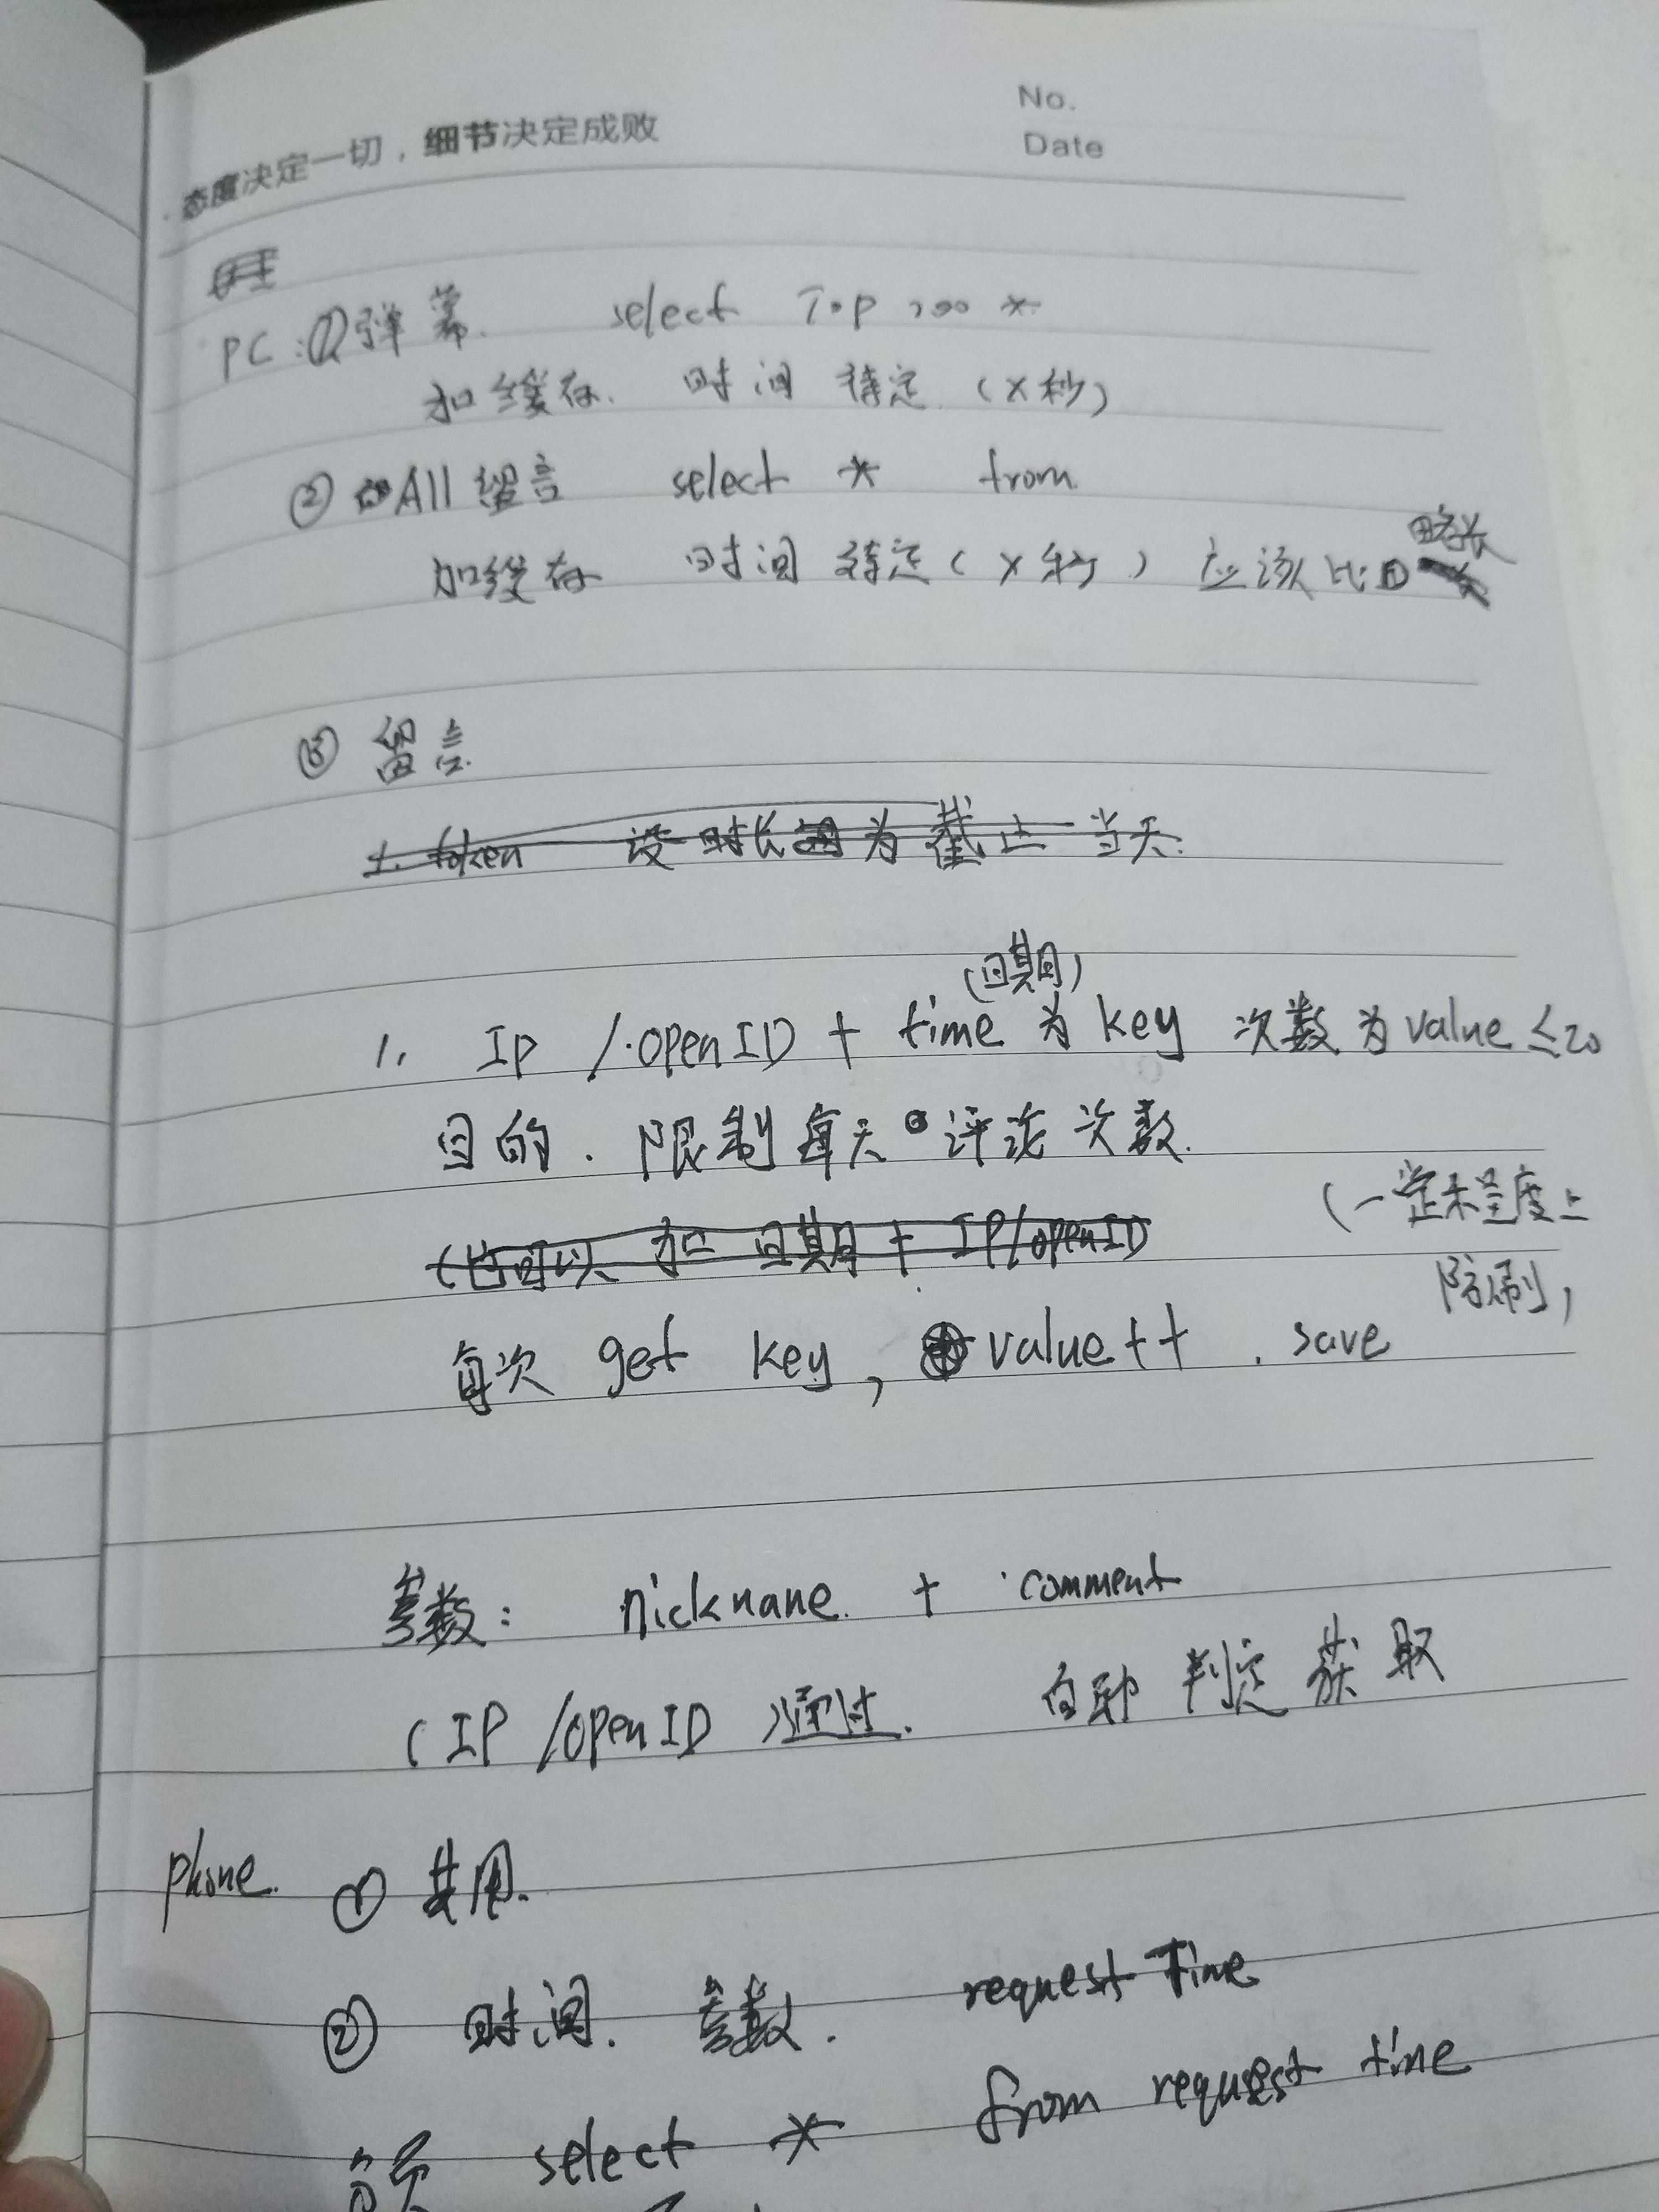 No.
Date
态度决定一切，细节决定成败
PC：①弹幕. select Top 200 *
加缓存. 时间 待定（X秒）
② All 留言 select * from
略长
加缓存 时间 待定（X秒）应该比①
③ 留言
1. token 设时长为截止当天.
（日期）
1. Ip /.openID + time 为 key 次数为 value ≤20
目的. 限制每天评论次数.
（一定程度上
（也可以 加 日期 + IP/openID
防刷，
每次 get key, value++ . save
参数: nickname. + comment
（IP /openID ）通过. 自动 判定 获取
phone. ① 共用.
② 时间. 参数. request Time
select * from request time